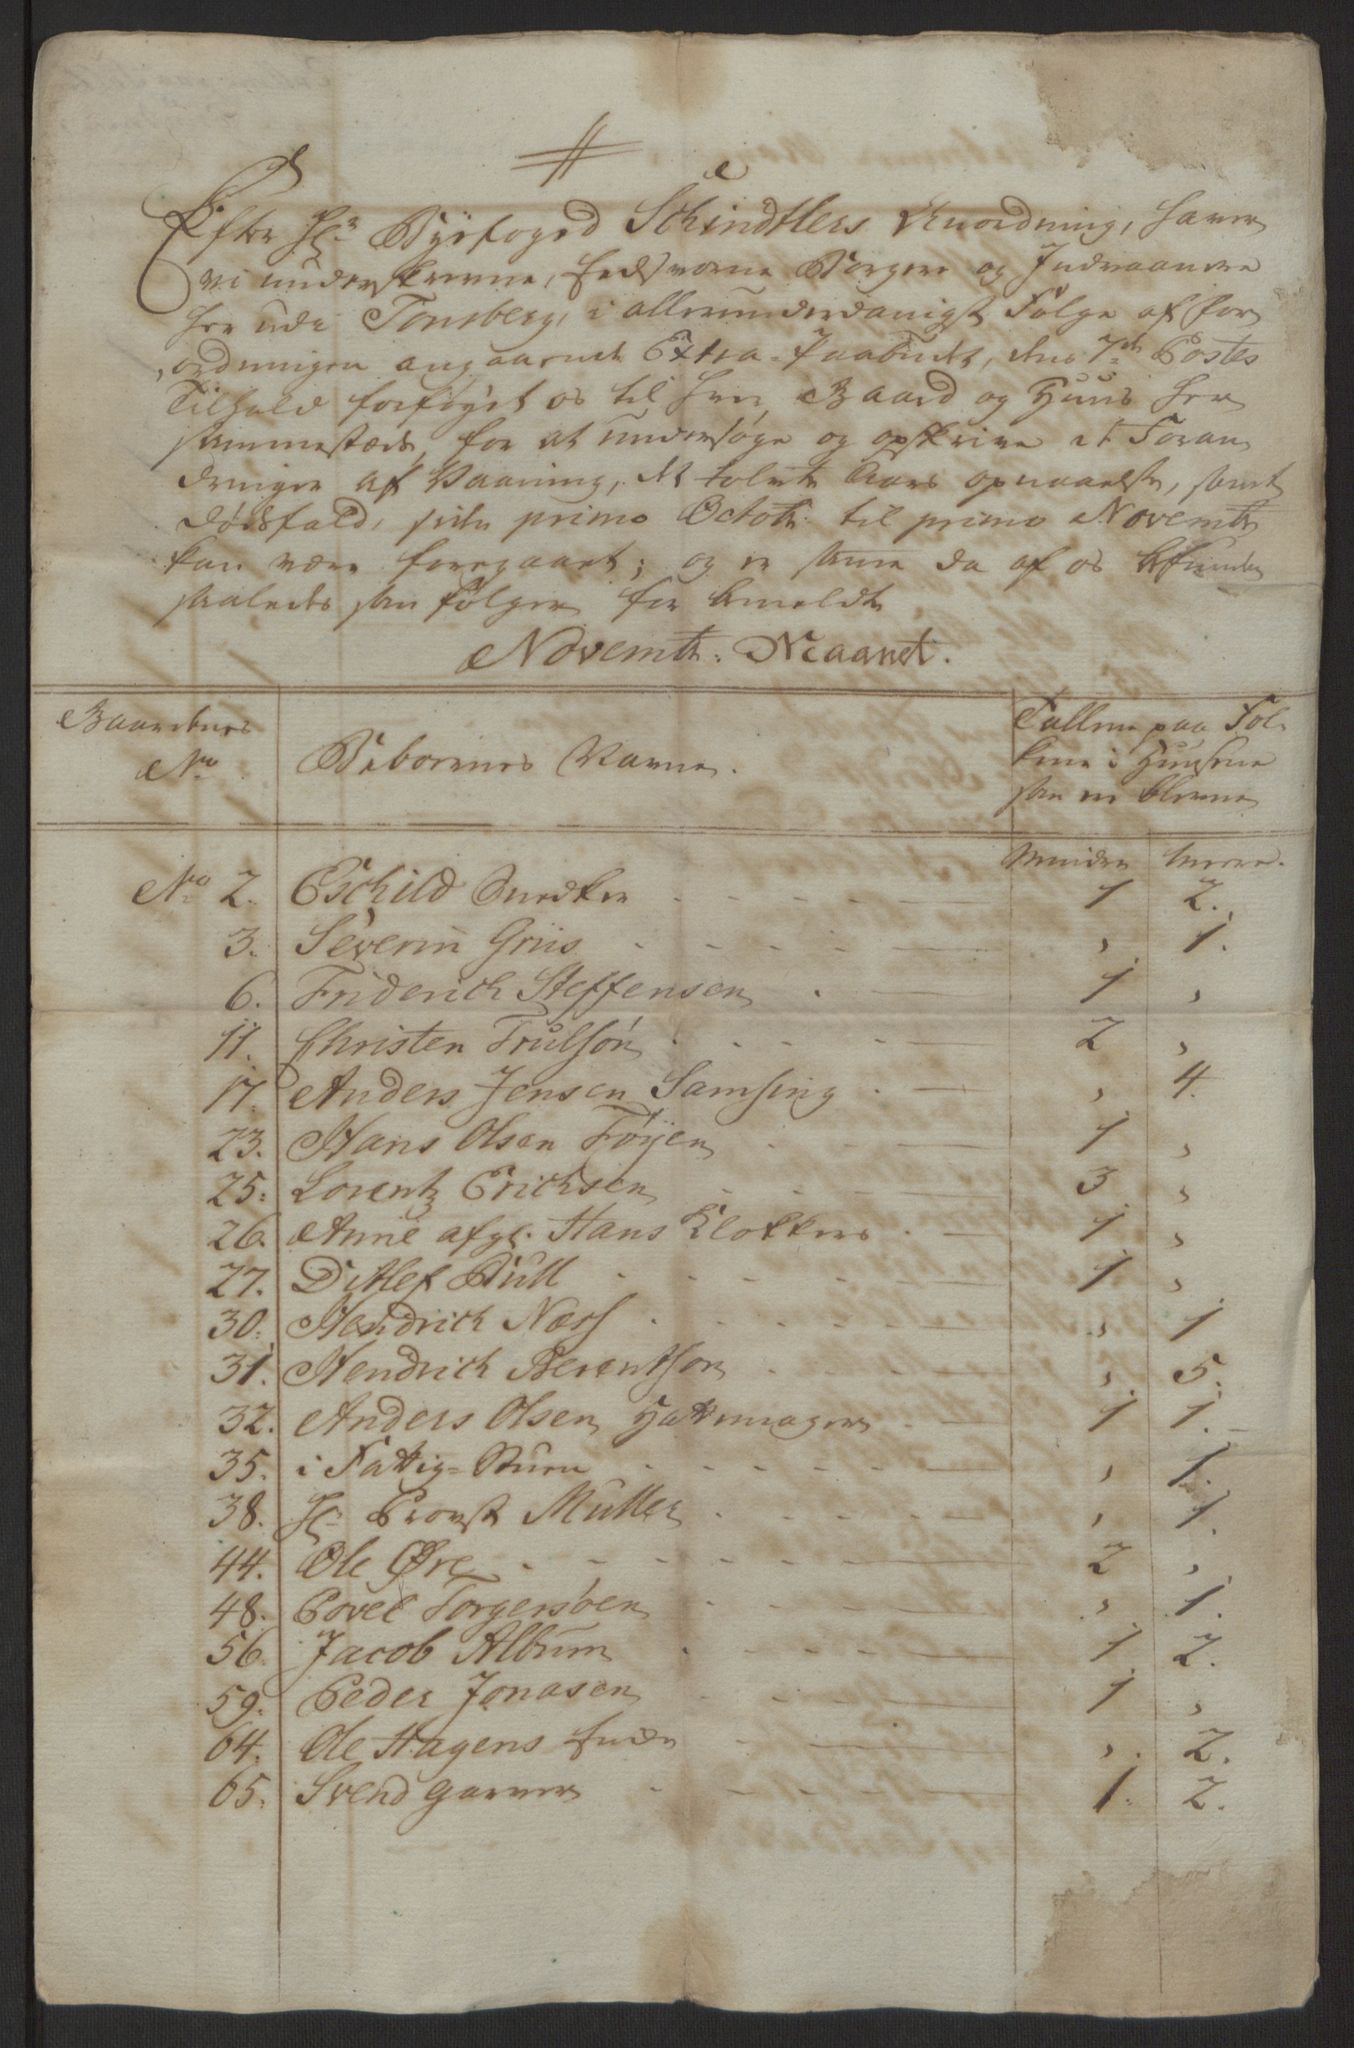 Efter Hr Byefoged Schindtlers Anordning, haver
vi underskrevne, Eedsvorne Borgere og Indvaanere
her udi Tonsberg, i allerunderdanigst Følge af for
ordningen angaaende Extra-Paabudet, dens 7de Postes
Tilhold forføyet os til hver Gaard og Huus her
sammesteds, for at undersøge og opskrive et Foran
dringer af Vaaning, et tolvte Aars opnaaelse, samt
Dødsfald, siden primo Octobr: til primo Novembr
kan være foregaaet; og er samme da af os befunden
saaledes som følger for bemeldte
Novembr. Maanet.
Gaardenes No
Beboernes Navne.
Tallene paa Fol-
kene i Huusene
som ere blevne
Mindre
meere.
No 2. Eschild Snedker 1 2.
3. Severin Griis , 1.
6. Friderich Steffensen 1 ,
11. Christen Trulsøn 2 ,
17. Anders Jensen Samsing , 4.
23. Hans Olsen Føyen 1 ,
25. Lorentz Erichsen 3 ,
26. Anne afgl. Hans Klokkers 1 ,
27. Ditlef Bull 1 ,
30. Hendrich Næss , 1
31. Hendrich Berentson , 5.
32. Anders Olsen Hattemager 1 1.
35. i Fattig-Buen , 1.
38. Hr Provst Muller , 1.
44. Ole Øre 2 ,
48. Povel Torgersøen , 1.
56. Jacob Album 1 2.
59. Peder Jonasen 1 ,
64. Ole Hagens Enke , 2.
65. Svend Garver 1. 2.